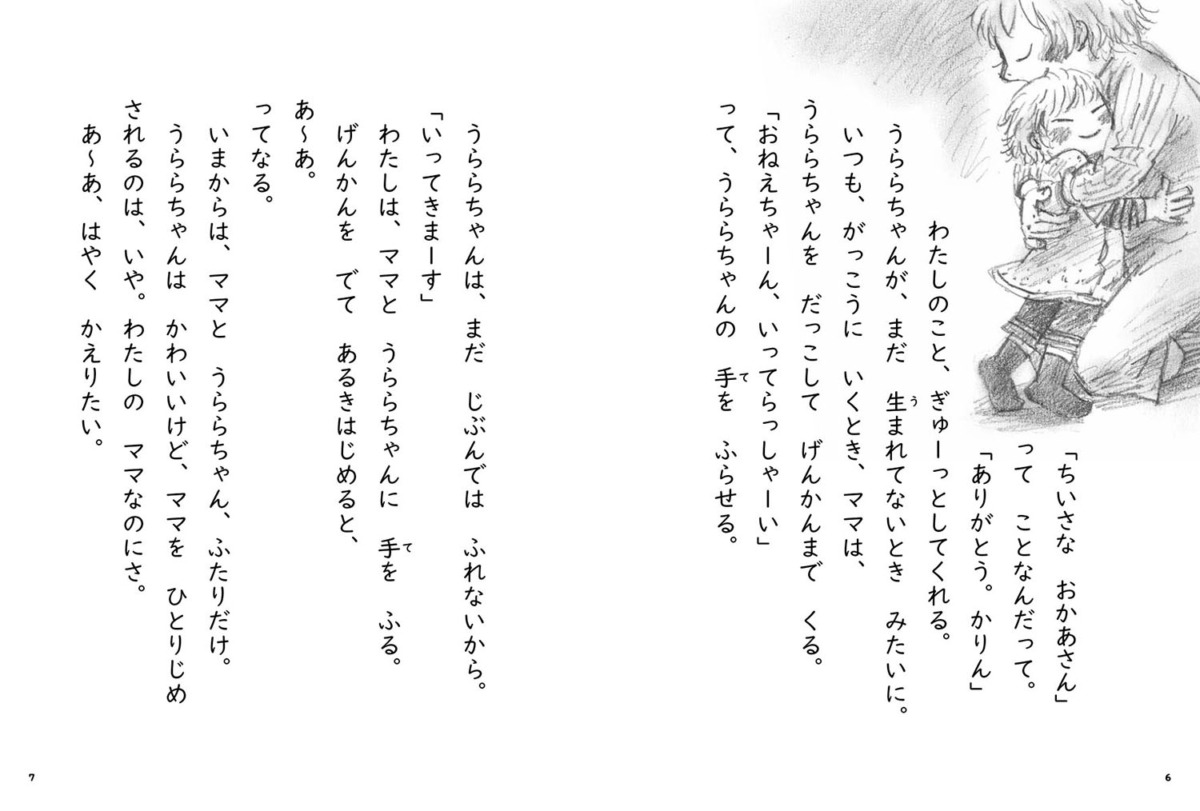 「ちいさな　おかあさん」
って　ことなんだって。
「ありがとう。かりん」
わたしのこと、ぎゅーっとしてくれる。
うららちゃんが、まだ　生まれてないとき　みたいに。
う
いつも、がっこうに　いくとき、ママは、
うららちゃんを　だっこして　げんかんまで　くる。
「おねえちゃーん、いってらっしゃーい」
って、うららちゃんの　手を　ふらせる。
て
6
うららちゃんは、まだ　じぶんでは　ふれないから。
「いってきまーす」
わたしは、ママと　うららちゃんに　手を　ふる。
て
げんかんを　でて　あるきはじめると、
あ〜あ。
ってなる。
いまからは、ママと　うららちゃん、ふたりだけ。
うららちゃんは　かわいいけど、ママを　ひとりじめ
されるのは、いや。わたしの　ママなのにさ。
あ〜あ、はやく　かえりたい。
7